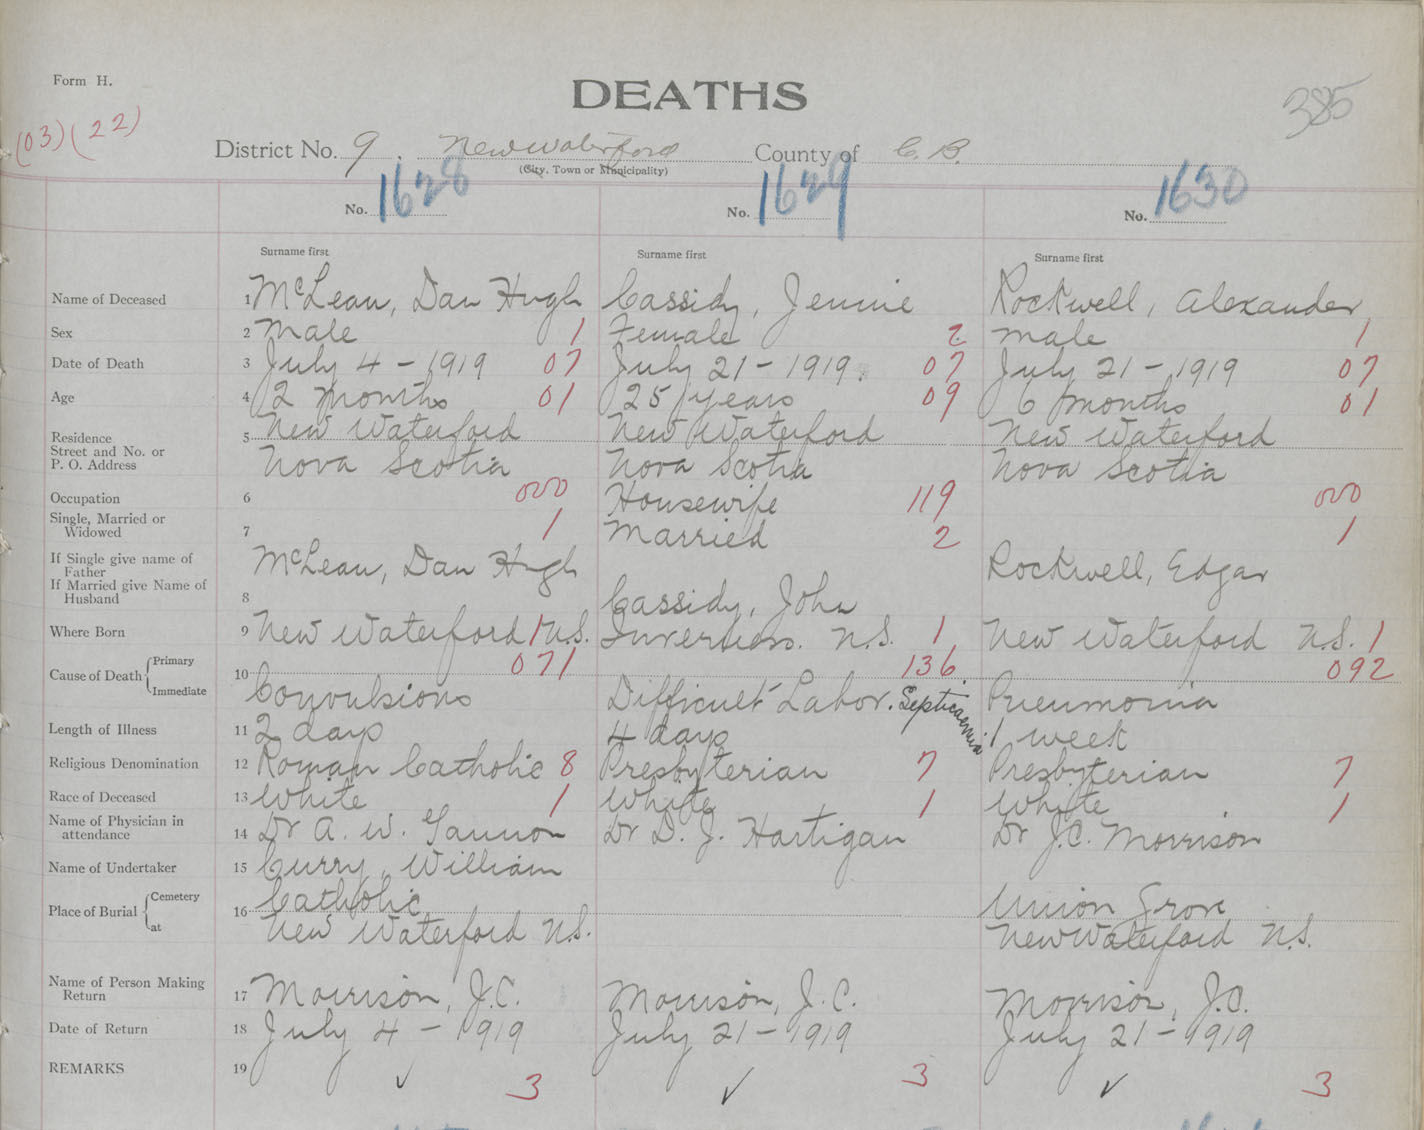 Form H.
DEATHS
385
(03) (22)
District No. 9. New Waterford County of C. B.
(City, Town or Municipality)
No. 1628 No. 1629 No. 1630
Surname first Surname first Surname first
Name of Deceased 1 McLean, Dan Hugh Cassidy, Jennie Rockwell, Alexander
Sex 2 Male 1 Female 2 Male 1
Date of Death 3 July 4 - 1919 07 July 21 - 1919. 07 July 21 - 1919 07
Age 4 2 months 01 25 years 09 6 months 01
Residence
Street and No. or
P. O. Address
5 New Waterford New Waterford New Waterford
Nova Scotia Nova Scotia Nova Scotia
Occupation 6 000 Housewife 119 000
Single, Married or
Widowed 7 1 Married 2 1
If Single give name of
Father McLean, Dan Hugh Rockwell, Edgar
If Married give Name of
Husband 8 Cassidy, John
Where Born 9 New Waterford N.S. 1 Inverness. N.S. 1 New Waterford N.S. 1
Cause of Death Primary 10 071 136 092
Immediate Convulsions Difficult Labor. Septicaemia Pneumonia
Length of Illness 11 2 days 4 days 1 week
Religious Denomination 12 Roman Catholic 8 Presbyterian 7 Presbyterian 7
Race of Deceased 13 White 1 White 1 White 1
Name of Physician in
attendance 14 Dr A. W. Gannon Dr D. J. Hartigan Dr J.C. Morrison
Name of Undertaker 15 Curry, William
Place of Burial Cemetery 16 Catholic Union Grove
at New Waterford N.S. New Waterford N.S.
Name of Person Making
Return 17 Morrison, J.C. Morrison, J.C. Morrison, J.C.
Date of Return 18 July 4 - 1919 July 21 - 1919 July 21 - 1919
REMARKS 19 ✓ 3 ✓ 3 ✓ 3